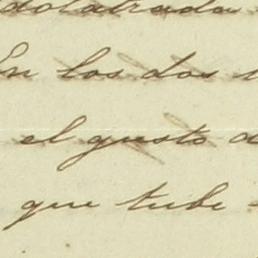 idolatrada
En los dos
el gusto d
que tube